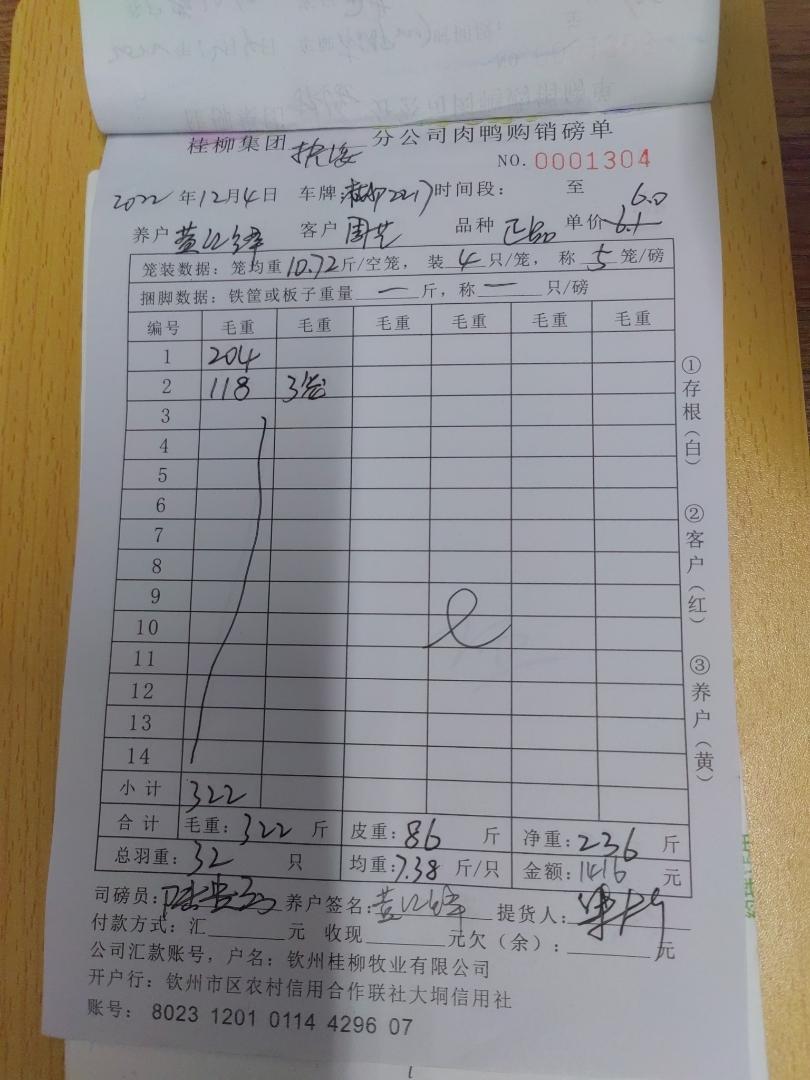 桂柳集团 分公司肉鸭购销磅单
NO. 0001304
2022年12月4日 车牌: 时间段: 至
6.0
养户 黄 客户 周 品种 正品 单价 6.1
笼装数据: 笼均重10.72斤/空笼, 装4只/笼, 称5笼/磅
捆脚数据: 铁筐或板子重量一斤, 称一只/磅
编号 毛重 毛重 毛重 毛重 毛重 毛重
1 204
2 118 3笼
3
4
5
6
7
8
9
10
11
12
13
14
小计 322
合计 毛重: 322 斤 皮重: 86 斤 净重: 236 斤
总羽重: 32 只 均重: 7.38 斤/只 金额: 1416 元
司磅员: 养户签名: 黄 提货人:
付款方式: 汇 元 收现 元欠(余): 元
公司汇款账号, 户名: 钦州桂柳牧业有限公司
开户行: 钦州市区农村信用合作联社大垌信用社
账号: 8023 1201 0114 4296 07
①存根(白)
②客户(红)
③养户(黄)